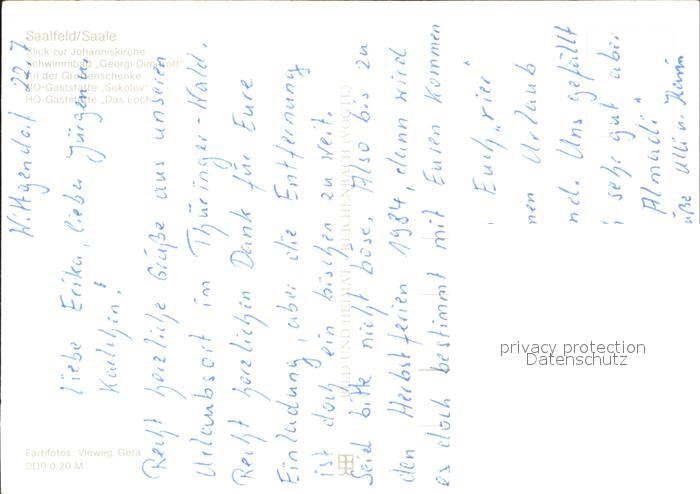 Saalfeld/Saale
Blick zur Johanniskirche
Schwimmbad „Georgi Dimitroff"
An der Großenschenke
HO-Gaststätte „Sokolov"
HO-Gaststätte „Das Loch"
Farbfotos: Vieweg, Gera
DDR 0,20 M
BILD UND HEIMAT REICHENBACH (VOGTL)
Wittgendorf 22.7
Liebe Erika, lieber Jürgen u.
Karlchin!
Recht herzliche Grüße aus unseren
Urlaubsort im Thüringer-Wald.
Recht herzlichen Dank für Eure
Einladung, aber die Entfernung
ist doch ein bischen zu weit.
Seid bitte nicht böse. Also bis zu
den Herbstferien 1984, dann wird
es doch bestimmt mit Euren Kommen
Euch „vier"
nen Urlaub
nd. Uns gefällt
sehr gut aber
Almadi"
üße Ulli u. Karin
privacy protection
Datenschutz